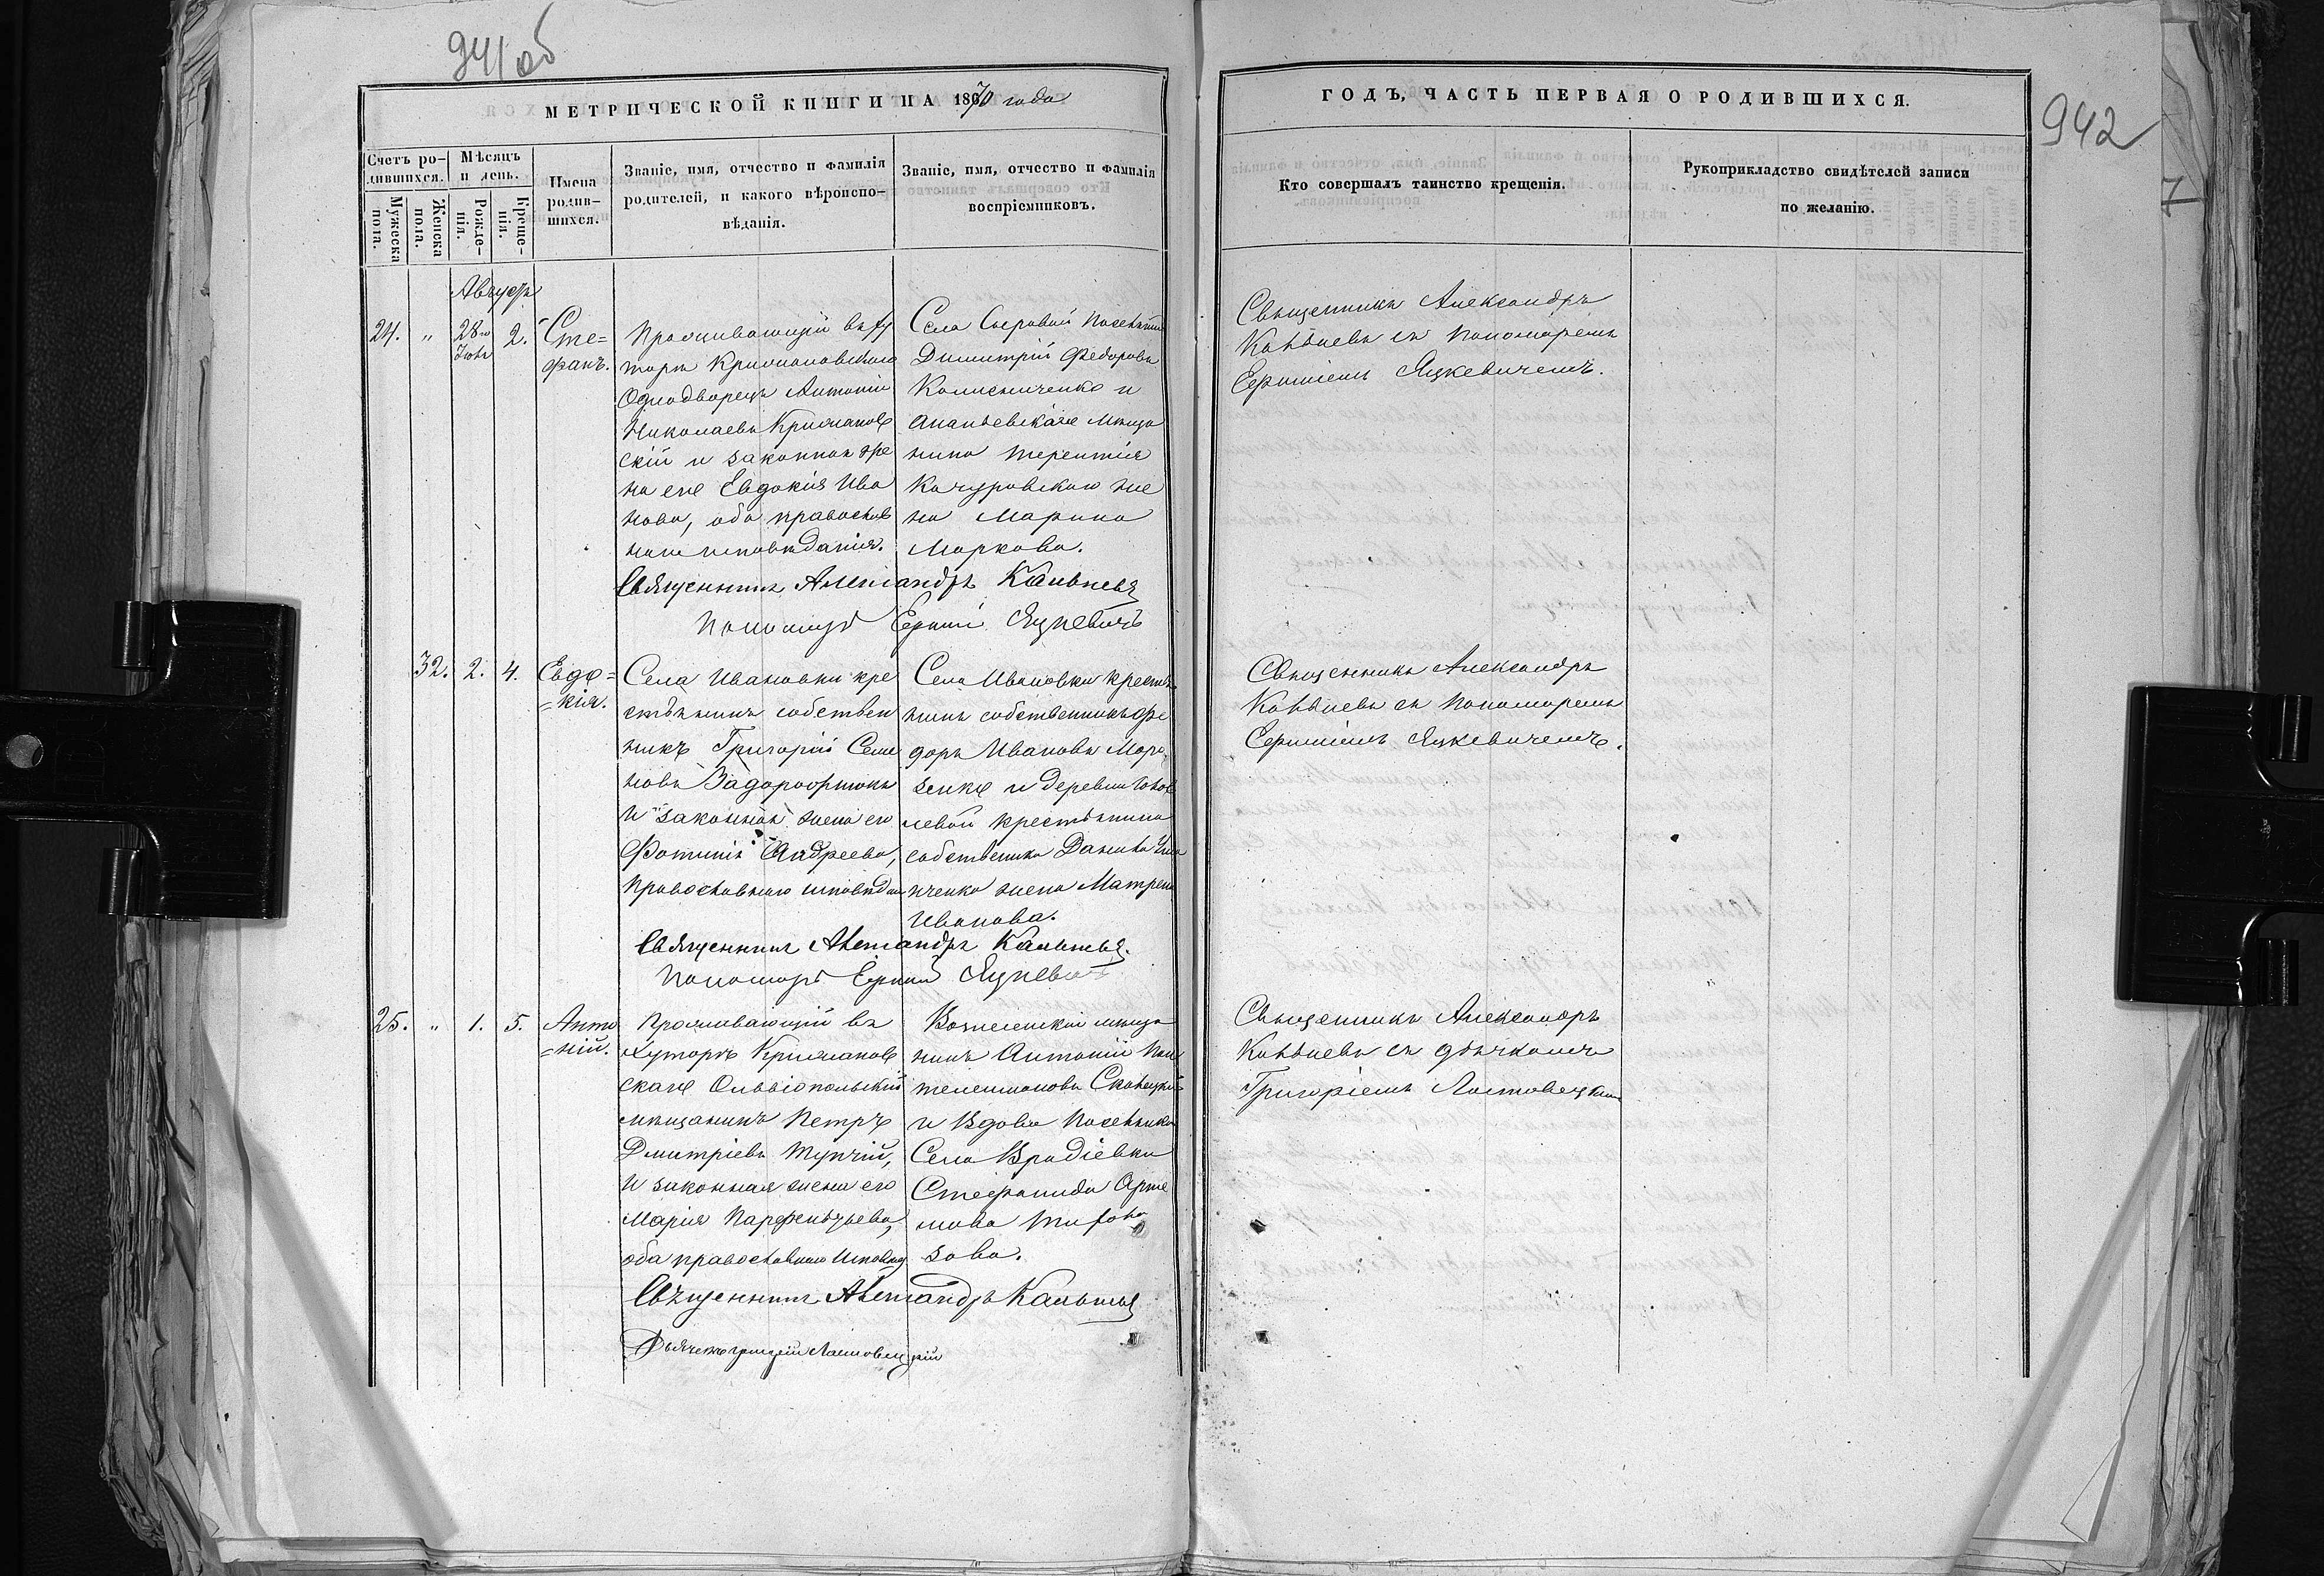 941об
МЕТРИЧЕСКОЙ КНИГИ НА 1870 года
Счетъ ро-
дившихся.
Мужеска
пола.
Женска
пола.
Мѣсяцъ
и день.
Рожде-
нія.
Креще-
нія.
Имена
родив-
шихся.
Званіе, имя, отчество и фамилія
родителей, и какого вѣроиспо-
вѣданія.
Званіе, имя, отчество и фамилія
воспріемниковъ.
Августъ
24. „ 28го Іюля 2. Сте=
фанъ.
Проживающій въ ху
торѣ Крижановскаго
Однодворецъ Антоній
Николаевъ Крижанов
скій и законная же
на его Евдокія Ива
нова, оба православ
наго исповѣданія.
Села Сыровой Поселянинъ
Димитрій Федоровъ
Колисниченко и
Ананьевскаго мѣща
нина Терентія
Качуровскаго же
на Марина
Маркова.
Священникъ Александръ Кальневъ
Пономарь Ермій Яцкевичъ
32. 2. 4. Евдо=
=кія.
Села Ивановки кре
стьянинъ собствен
никъ Григорій Семе
новъ Задорожнюкъ
и законная жена его
Фотинія Андреева,
православнаго исповѣдан
Села Ивановки крестья
нинъ собственникъ Фе
доръ Ивановъ Моро
зенко и деревни
левой крестьянина
собственика Данила
нченко жена Матрена
Иванова.
Священникъ Александръ Кальневъ.
Пономарь Ермій Яцкевичъ
25. „ 1. 5. Анто
=ній.
Проживающій въ
Хуторѣ Крижанов
скаго Ольвіопольскій
мѣщанинъ Петръ
Дмитріевъ Тупчій,
и законная жена его
Марія Парфентьева,
оба православнаго исповѣд
Вознесенскій мѣща
нинъ Антоній Пан
телеимоновъ Скалецкій
и Вдова Поселянка
Села Врадіевки
Стефанида Арте
мова
зова.
Священникъ Александръ Кальневъ
Дьячекъ Григорій Ластовецкій
ГОДЪ, ЧАСТЬ ПЕРВАЯ О РОДИВШИХСЯ.
942
7
Кто совершалъ таинство крещенія.
Рукоприкладство свидѣтелей записи
по желанію.
Священникъ Александръ
Кальневъ съ Пономаремъ
Ерміемъ Яцкевичемъ.
Священникъ Александръ
Кальневъ съ Пономаремъ
Ерміемъ Яцкевичемъ.
Священникъ Александръ
Кальневъ съ дьячкомъ
Григоріемъ Ластовецким